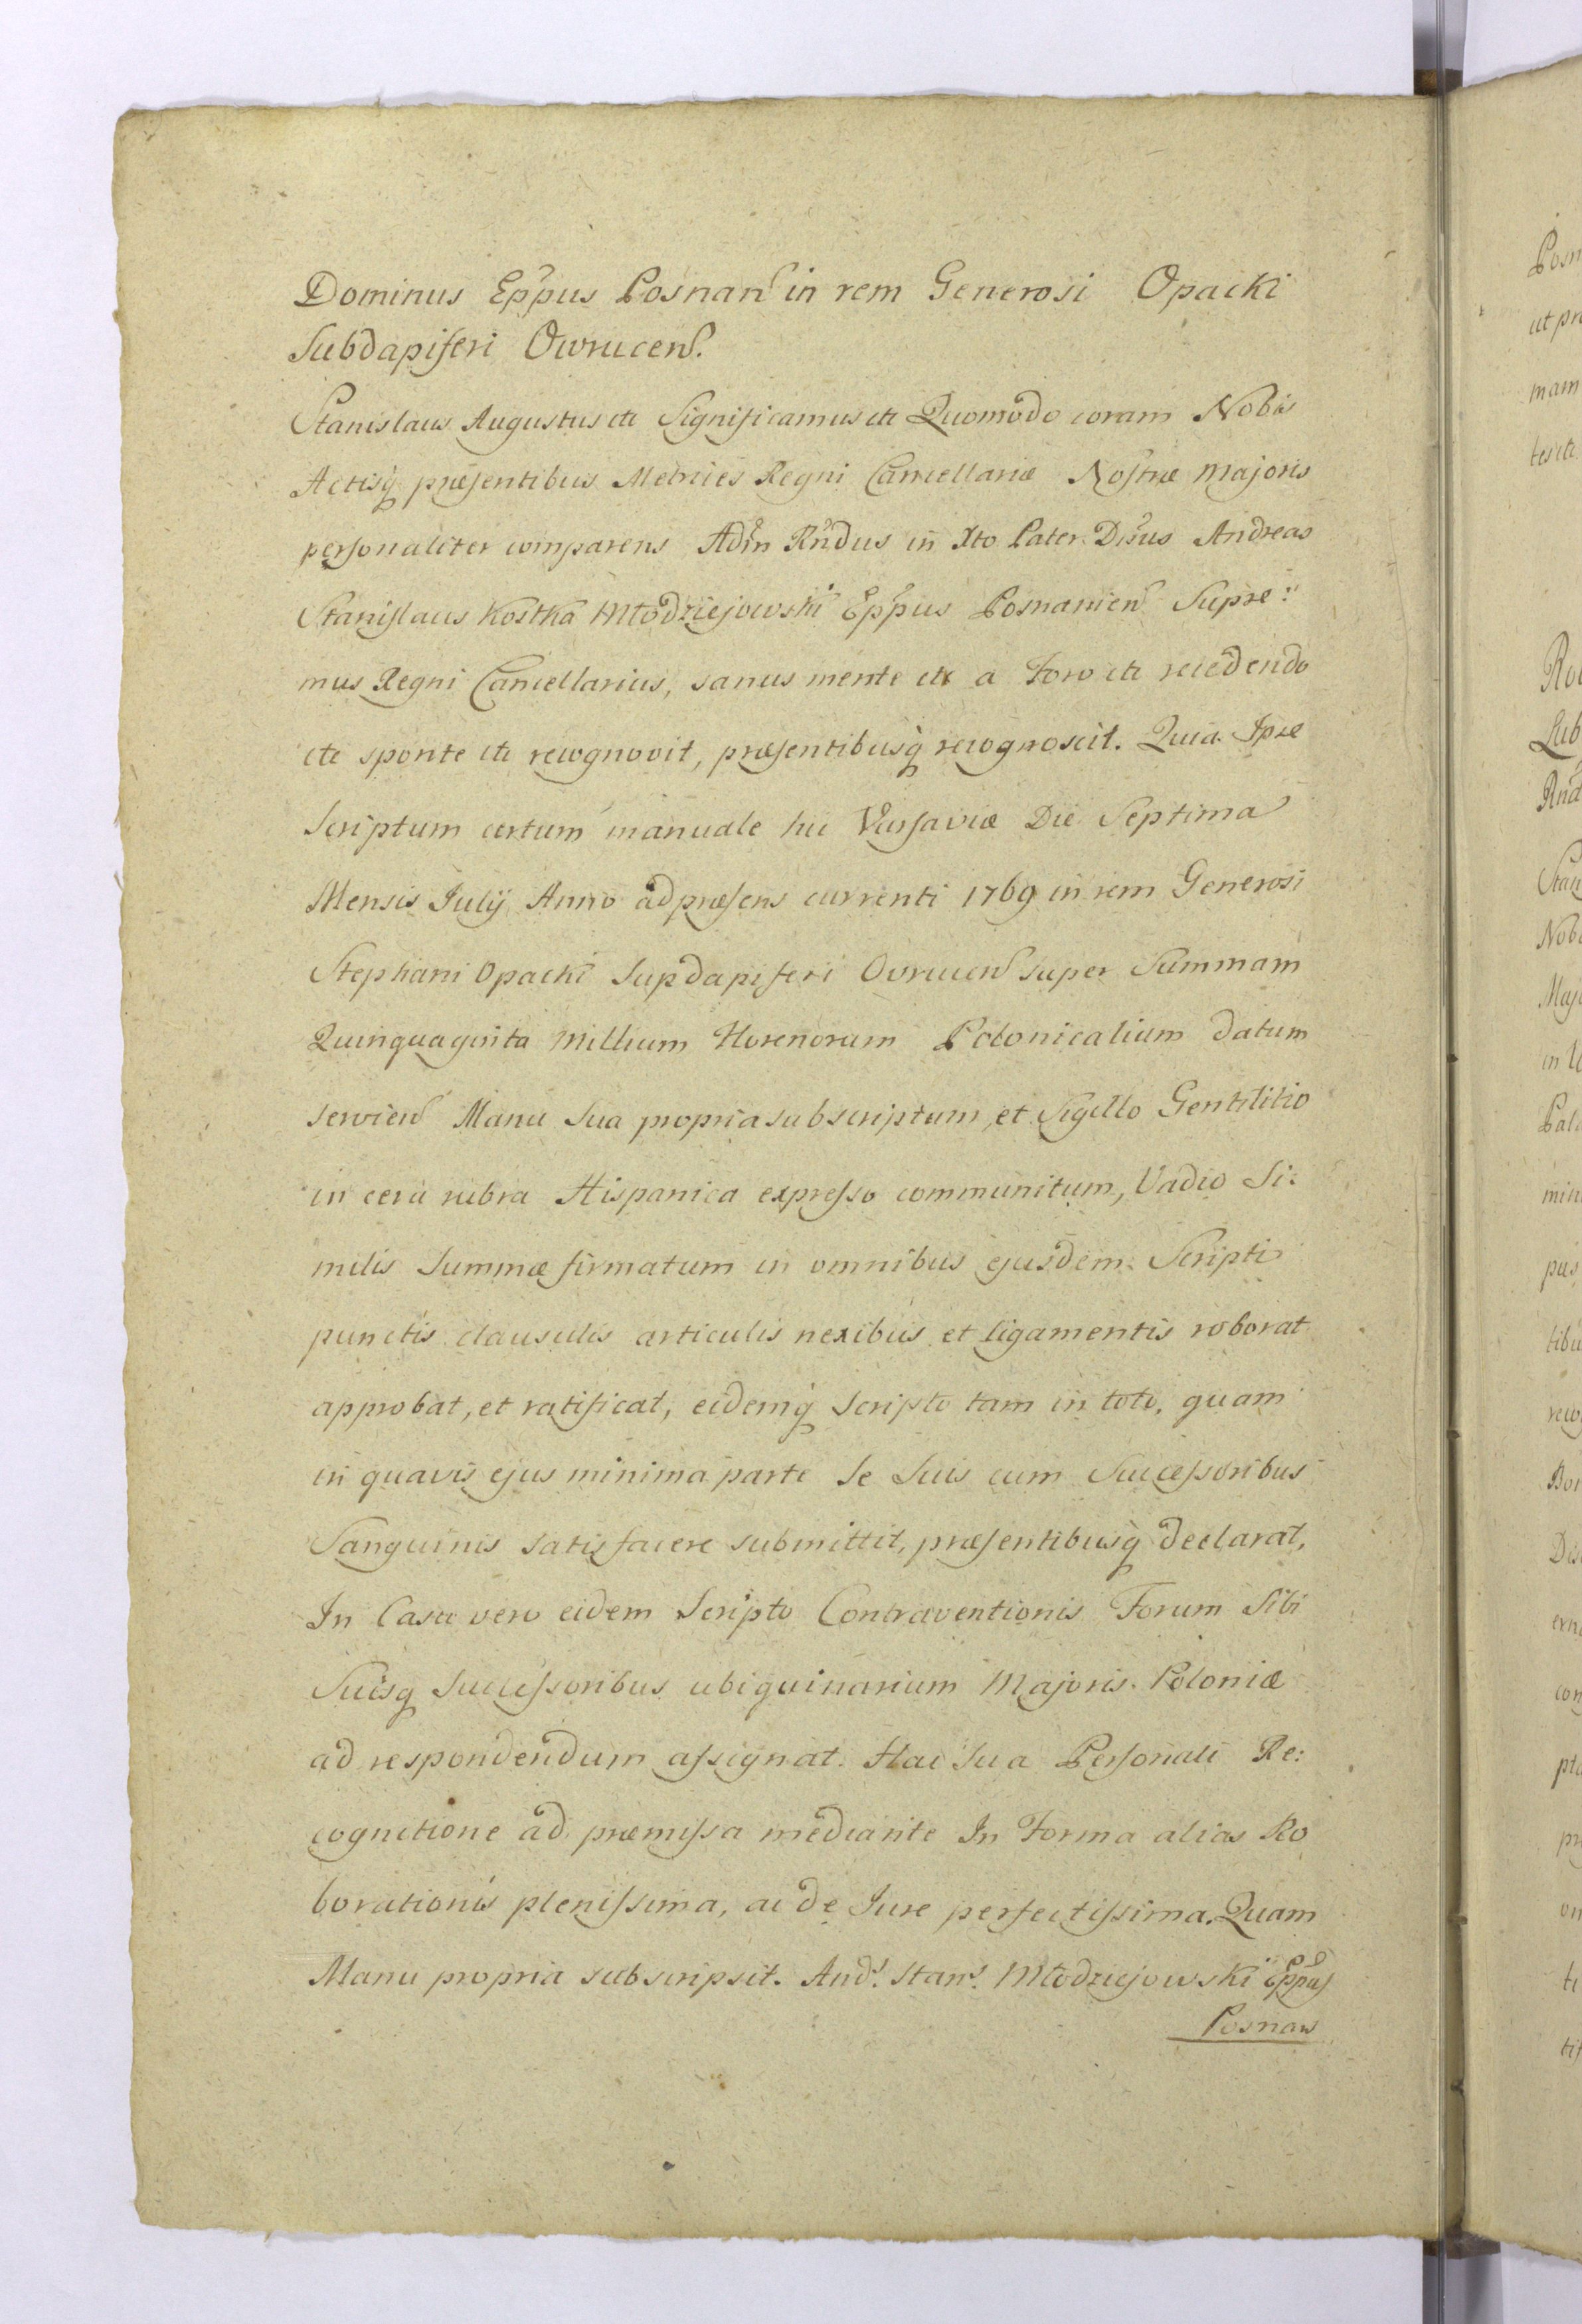 Dominus Eppus Posnan in rem Generosi Opacki
Subdapiferi Owrucen.
Stanislaus Augustus etc Significamus etc Quomodo coram Nobis
Actisq præsentibus Metrices Regni Cancellariæ Nostræ Majoris
personaliter comparens Adm Rndus in Xto Pater Dnus Andreas
Stanislaus Kostka Młodziejowski Eppus Posnanien Supre:
mus Regni Cancellarius, sanus mente etc a Foro etc recedendo
etc sponte etc recognovit, præsentibusq recognoscit. Quia Ipse
Scriptum certum manuale hic Varsaviæ Die Septima
Mensis Julij Anno ad præsens currenti 1769 in rem Generosi
Stephani Opacki Supdapiferi Ovrucen super Summam
Quinquaginta Millium Florenorum Polonicalium datum
servien Manu Sua propria subscriptum, et Sigillo Gentilitio
in cera rubra Hispanica expresso communitum, Vadio Si:
milis Summæ firmatum in omnibus ejusdem Scripti
punctis clausulis articulis nexibus et ligamentis roborat
approbat, et ratificat, eidemq Scripto tam in toto, quam
in quavis ejus minima parte Se Suis cum Successoribus
Sanguinis satisfacere submittit, præsentibusq declarat,
In Casu vero eidem Scripto Contraventionis Forum Sibi
Suisq Successoribus ubiquinarium Majoris Poloniæ
ad respondendum assignat. Hac Sua Personali Re:
cognitione ad præmissa mediante In Forma alias Ro
borationis plenissima, ac de Jure perfectissima. Quam
Manu propria subscripsit. Ands. Stans. Młodziejowski Eppus
Posnan